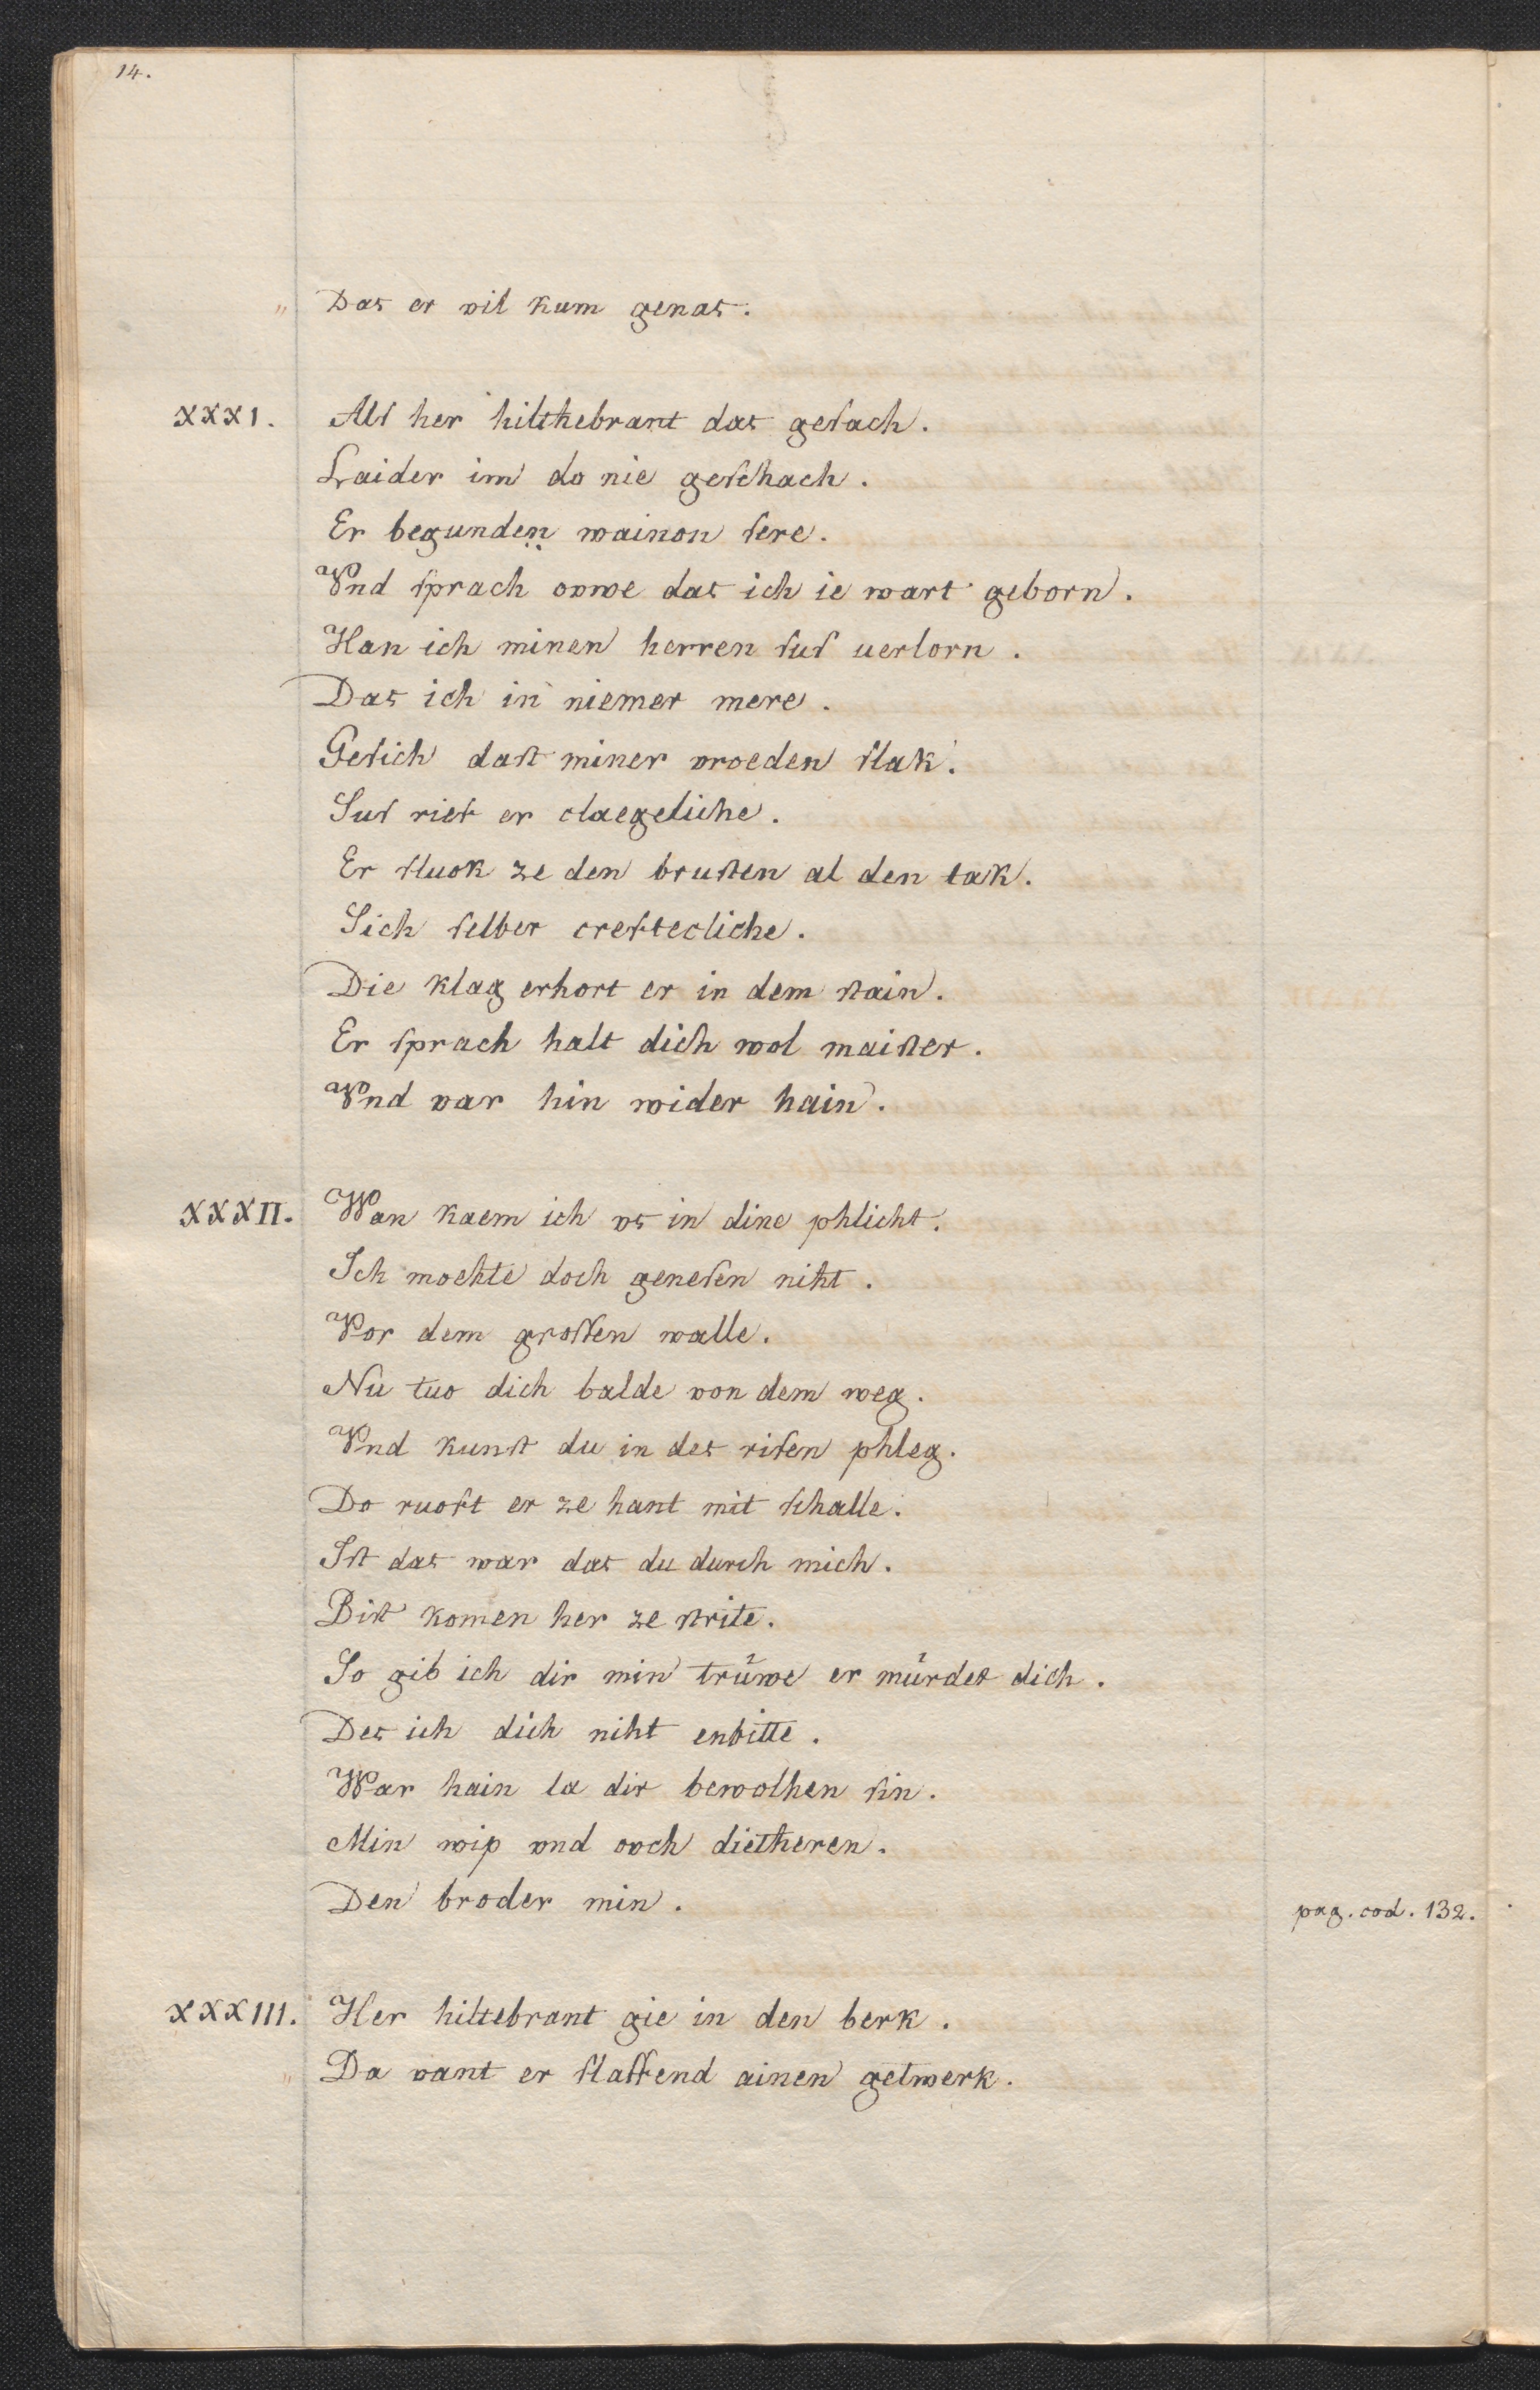 14.
" Das er vil kum genas.
XXXI. Alſ her hilthebrant das geſach.
Laider im do nie geſchach.
Er begunden wainon ſere.
Vnd ſprach owe das ich ie wart geborn.
Han ich minen herren ſuſ uerlorn.
Das ich in niemer mere.
Geſich daſt miner vroeden ſlak.
Suſ rief er claegeliche.
Er ſluok ze den bruſten al den tak.
Sich ſelber creftecliche.
Die klag erhort er in dem ſtain.
Er ſprach halt dich wol maiſter.
Vnd var hin wider hain.
XXXII. Wan kaem ich vs in dine phlicht.
Ich mochte doch geneſen niht.
Vor dem groſſen walle.
Nu tuo dich balde von dem weg.
Vnd kunſt du in des riſen phleg.
Do ruoft er ze hant mit ſchalle.
Iſt das war das du durch mich.
Biſt komen her ze ſtrite.
So gib ich dir min trüwe er mürdet dich.
Des ich dich niht enbitte.
War hain la dir bevolhen ſin.
Min wip vnd och dietheren.
Den broder min.
pag. cod. 132.
XXXIII. Her hiltebrant gie in den berk.
" Da vant er ſlaffend ainen getwerk.